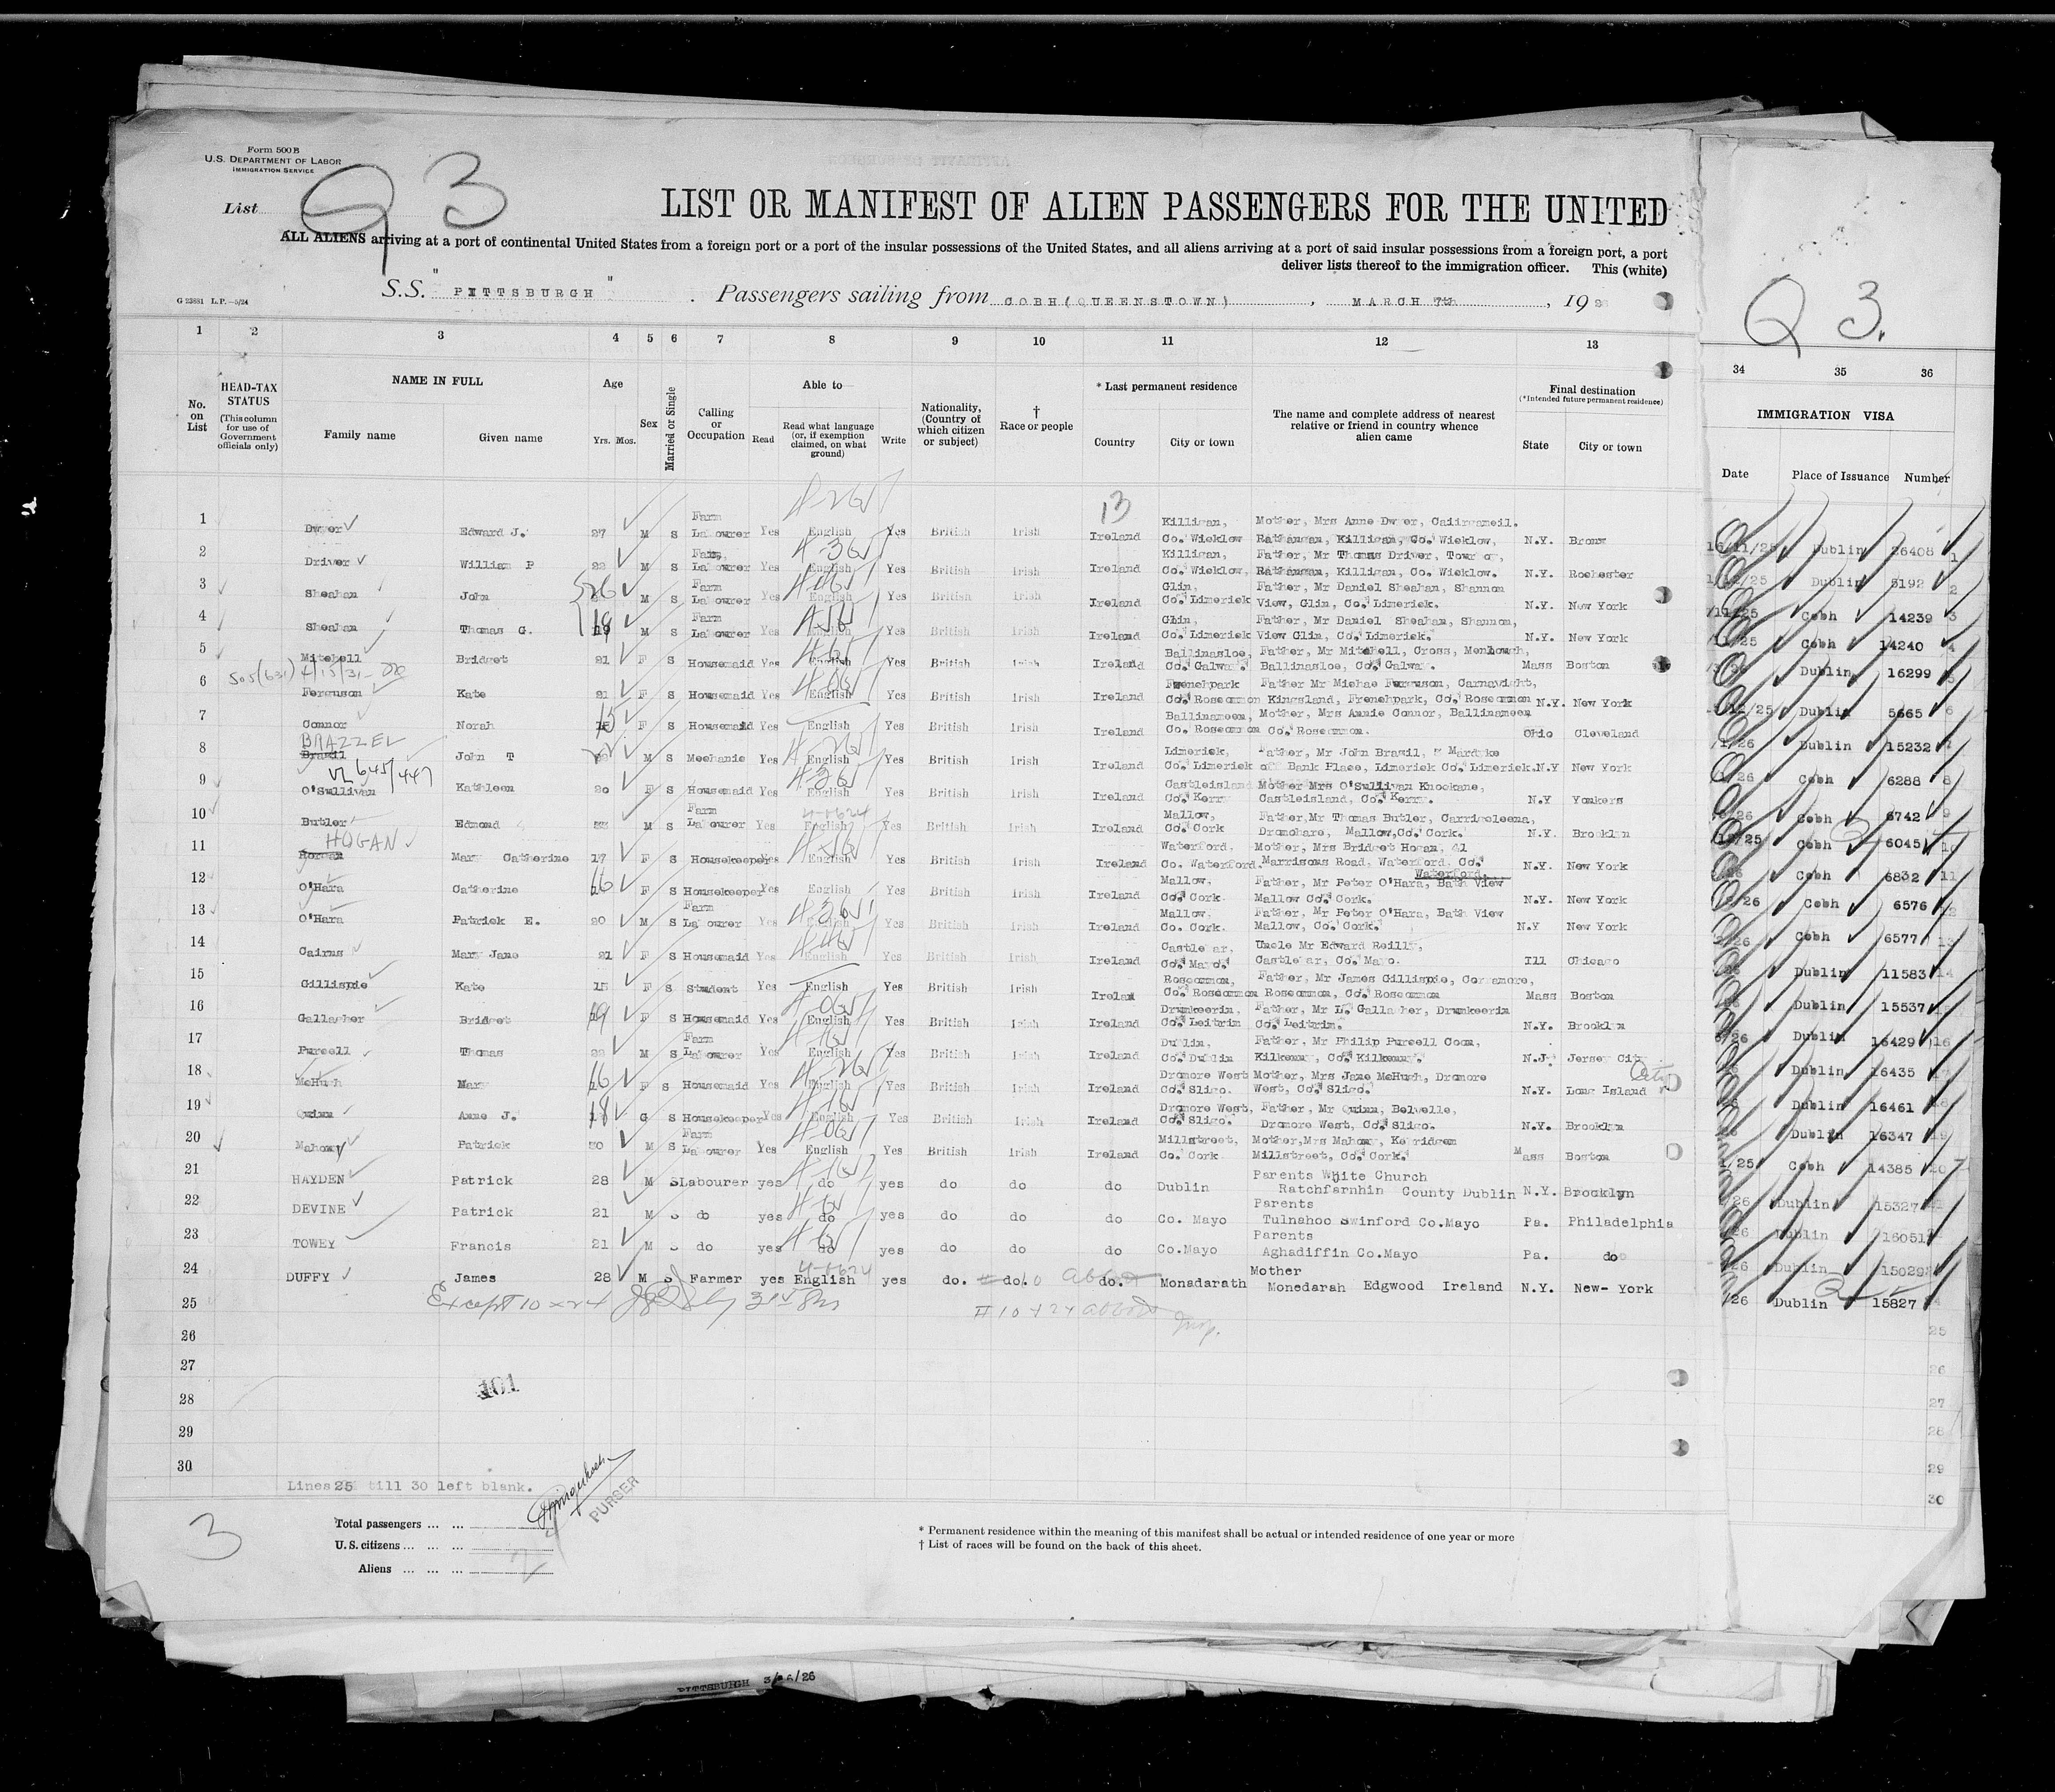 Form 500 B
U.S. DEPARTMENT OF LABOR
IMMIGRATION SERVICE
List Q 3
LIST OR MANIFEST OF ALIEN PASSENGERS FOR THE UNITED
ALL ALIENS arriving at a port of continental United States from a foreign port or a port of the insular possessions of the United States, and all aliens arriving at a port of said insular possessions from a foreign port, a port
deliver lists thereof to the immigration officer. This (white)
G 23881 L.P.—5/24
S.S. "PITTSBURGH" . Passengers sailing from COBH(QUEENSTOWN) , MARCH 7th , 19
Q 3.
1 2 3 4 5 6 7 8 9 10 11 12 13 34 35 36
No. on List
HEAD-TAX STATUS (This column for use of Government officials only)
NAME IN FULL
Family name Given name
Age
Yrs. Mos.
Sex
Married or Single
Calling or Occupation
Able to
Read Read what language (or, if exemption claimed, on what ground) Write
Nationality, (Country of which citizen or subject)
† Race or people
* Last permanent residence
Country City or town
The name and complete address of nearest relative or friend in country whence alien came
Final destination
(*Intended future permanent residence)
State City or town
IMMIGRATION VISA
Date Place of Issuance Number
13
1 Dwyer Edward J. 27 M S Farm Labourer Yes English Yes British Irish Ireland Killigan, Co. Wicklow Mother, Mrs Anne Dwyer, Rathangan, Killigan, Co. Wicklow, N.Y. Bronx 16/11/25 Dublin 26408 1
2 Driver William P 22 M S Farm, Labourer Yes English Yes British Irish Ireland Killigan, Co. Wicklow, Father, Mr Thomas Driver, Rathangan, Killigan, Co. Wicklow. N.Y. Rochester Dublin 5192 2
3 Sheahan John 26 M S Farm Labourer Yes English Yes British Irish Ireland Glin, Co. Limerick Father, Mr Daniel Sheahan, Shannon View, Glin, Co. Limerick. N.Y. New York Cobh 14239 3
4 Sheahan Thomas G. 18 M S Farm Labourer Yes English Yes British Irish Ireland Glin, Co. Limerick Father, Mr Daniel Sheahan, Shannon, View Glin, Co. Limerick. N.Y. New York Cobh 14240 4
5 Mitchell Bridget 21 F S Housemaid Yes English Yes British Irish Ireland Ballinasloe, Co. Galway. Father, Mr Mitchell, Cross, Menlough, Ballinasloe, Co. Galway. Mass Boston Dublin 16299 5
505(631) 4/15/31
6 Ferguson Kate 21 F S Housemaid Yes English Yes British Irish Ireland Frenchpark Co. Roscommon Father Mr Michae Ferguson, Carnavight, Kingsland, Frenchpark, Co. Roscommon N.Y. New York Dublin 5665 6
7 Connor Norah 15 F S Housemaid Yes English Yes British Irish Ireland Ballinameen, Co. Roscommon Mother, Mrs Annie Connor, Ballinameen Co. Roscommon. Ohio Cleveland Dublin 15232 7
BRAZZEL
8 Brazil John T 22 M S Mechanic Yes English Yes British Irish Ireland Limerick, Co. Limerick Father, Mr John Brazil, Mardyke Bank Place, Limerick Co. Limerick. N.Y New York Cobh 6288 8
VL 645/447
9 O'Sullivan Kathleen 20 F S Housemaid Yes English Yes British Irish Ireland Castleisland Co. Kerry Mother Mrs O'Sullivan Knockane, Castleisland, Co. Kerry. N.Y Yonkers Cobh 6742 9
10 Butler Edmond 33 M S Farm Labourer Yes English Yes British Irish Ireland Mallow, Co. Cork Father, Mr Thomas Butler, Carrigcleena, Dromohare, Mallow, Co. Cork. N.Y. Brooklyn Cobh 6045 10
HOGAN
11 Mary Catherine 17 F S Housekeeper Yes English Yes British Irish Ireland Waterford, Co. Waterford. Mother, Mrs Bridget Hogan, 41 Marrisons Road, Waterford, Co. Waterford. N.Y. New York Cobh 6832 11
12 O'Hara Catherine 16 F S Housekeeper Yes English Yes British Irish Ireland Mallow, Co. Cork Father, Mr Peter O'Hara, Bath View Mallow Co. Cork. N.Y. New York Cobh 6576 12
13 O'Hara Patrick E. 20 M S Farm Labourer Yes English Yes British Irish Ireland Mallow, Co. Cork. Father, Mr Peter O'Hara, Bath View Mallow, Co. Cork. N.Y New York Cobh 6577 13
14 Cairns Mary Jane 21 F S Housemaid Yes English Yes British Irish Ireland Castlebar, Co. Mayo. Uncle Mr Edward Reilly, Castlebar, Co. Mayo. Ill Chicago Dublin 11583 14
15 Gillispie Kate 15 F S Student Yes English Yes British Irish Ireland Roscommon, Co. Roscommon Father, Mr James Gillispie, Roscommon, Co. Roscommon Mass Boston Dublin 15537
16 Gallagher Bridget 19 F S Housemaid Yes English Yes British Irish Ireland Drumkeerin, Co. Leitrim Father, Mr L. Gallagher, Drumkeerin Co. Leitrim. N.Y. Brooklyn Dublin 16429 16
17 Purcell Thomas 22 M S Farm Labourer Yes English Yes British Irish Ireland Dublin, Co. Dublin Father, Mr Philip Purcell Coon, Kilkenny, Co. Kilkenny. N.J. Jersey City Dublin 16435
18 McHugh Mary 16 F S Housemaid Yes English Yes British Irish Ireland Dromore West Co. Sligo. Mother, Mrs Jane McHugh, Dromore West, Co. Sligo. N.Y. Long Island City Dublin 16461 18
19 Quinn Anne J. 18 G S Housekeeper Yes English Yes British Irish Ireland Dromore West, Co. Sligo. Father, Mr Quinn, Belvelle, Dromore West, Co. Sligo. N.Y. Brooklyn Dublin 16347 19
20 Mahony Patrick 30 M S Farm Labourer Yes English Yes British Irish Ireland Millstreet, Co. Cork Mother, Mrs Mahony, Millstreet, Co. Cork. Mass Boston Cobh 14385 20
21 HAYDEN Patrick 28 M S Labourer yes do yes do do do Dublin Parents White Church Ratchfarnhin County Dublin N.Y. Brooklyn Dublin 15327
22 DEVINE Patrick 21 M S do yes do yes do do do Co. Mayo Parents Tulnahoo Swinford Co.Mayo Pa. Philadelphia Dublin 16051
23 TOWEY Francis 21 M S do yes do yes do do do Co.Mayo Parents Aghadiffin Co.Mayo Pa. do Dublin 15029
24 DUFFY James 28 M S Farmer yes English yes do. do. do. Monadarath Mother Monedarah Edgwood Ireland N.Y. New-York Dublin 15827
Except 10 x 24
# 10 + 24 aboard
Insp.
25 25
26 26
27 27
28 28
29 29
30 30
101
Lines 25 till 30 left blank.
PURSER
3
Total passengers ... ...
U.S. citizens ... ... ...
Aliens ... ... ...
* Permanent residence within the meaning of this manifest shall be actual or intended residence of one year or more
† List of races will be found on the back of this sheet.
PITTSBURGH